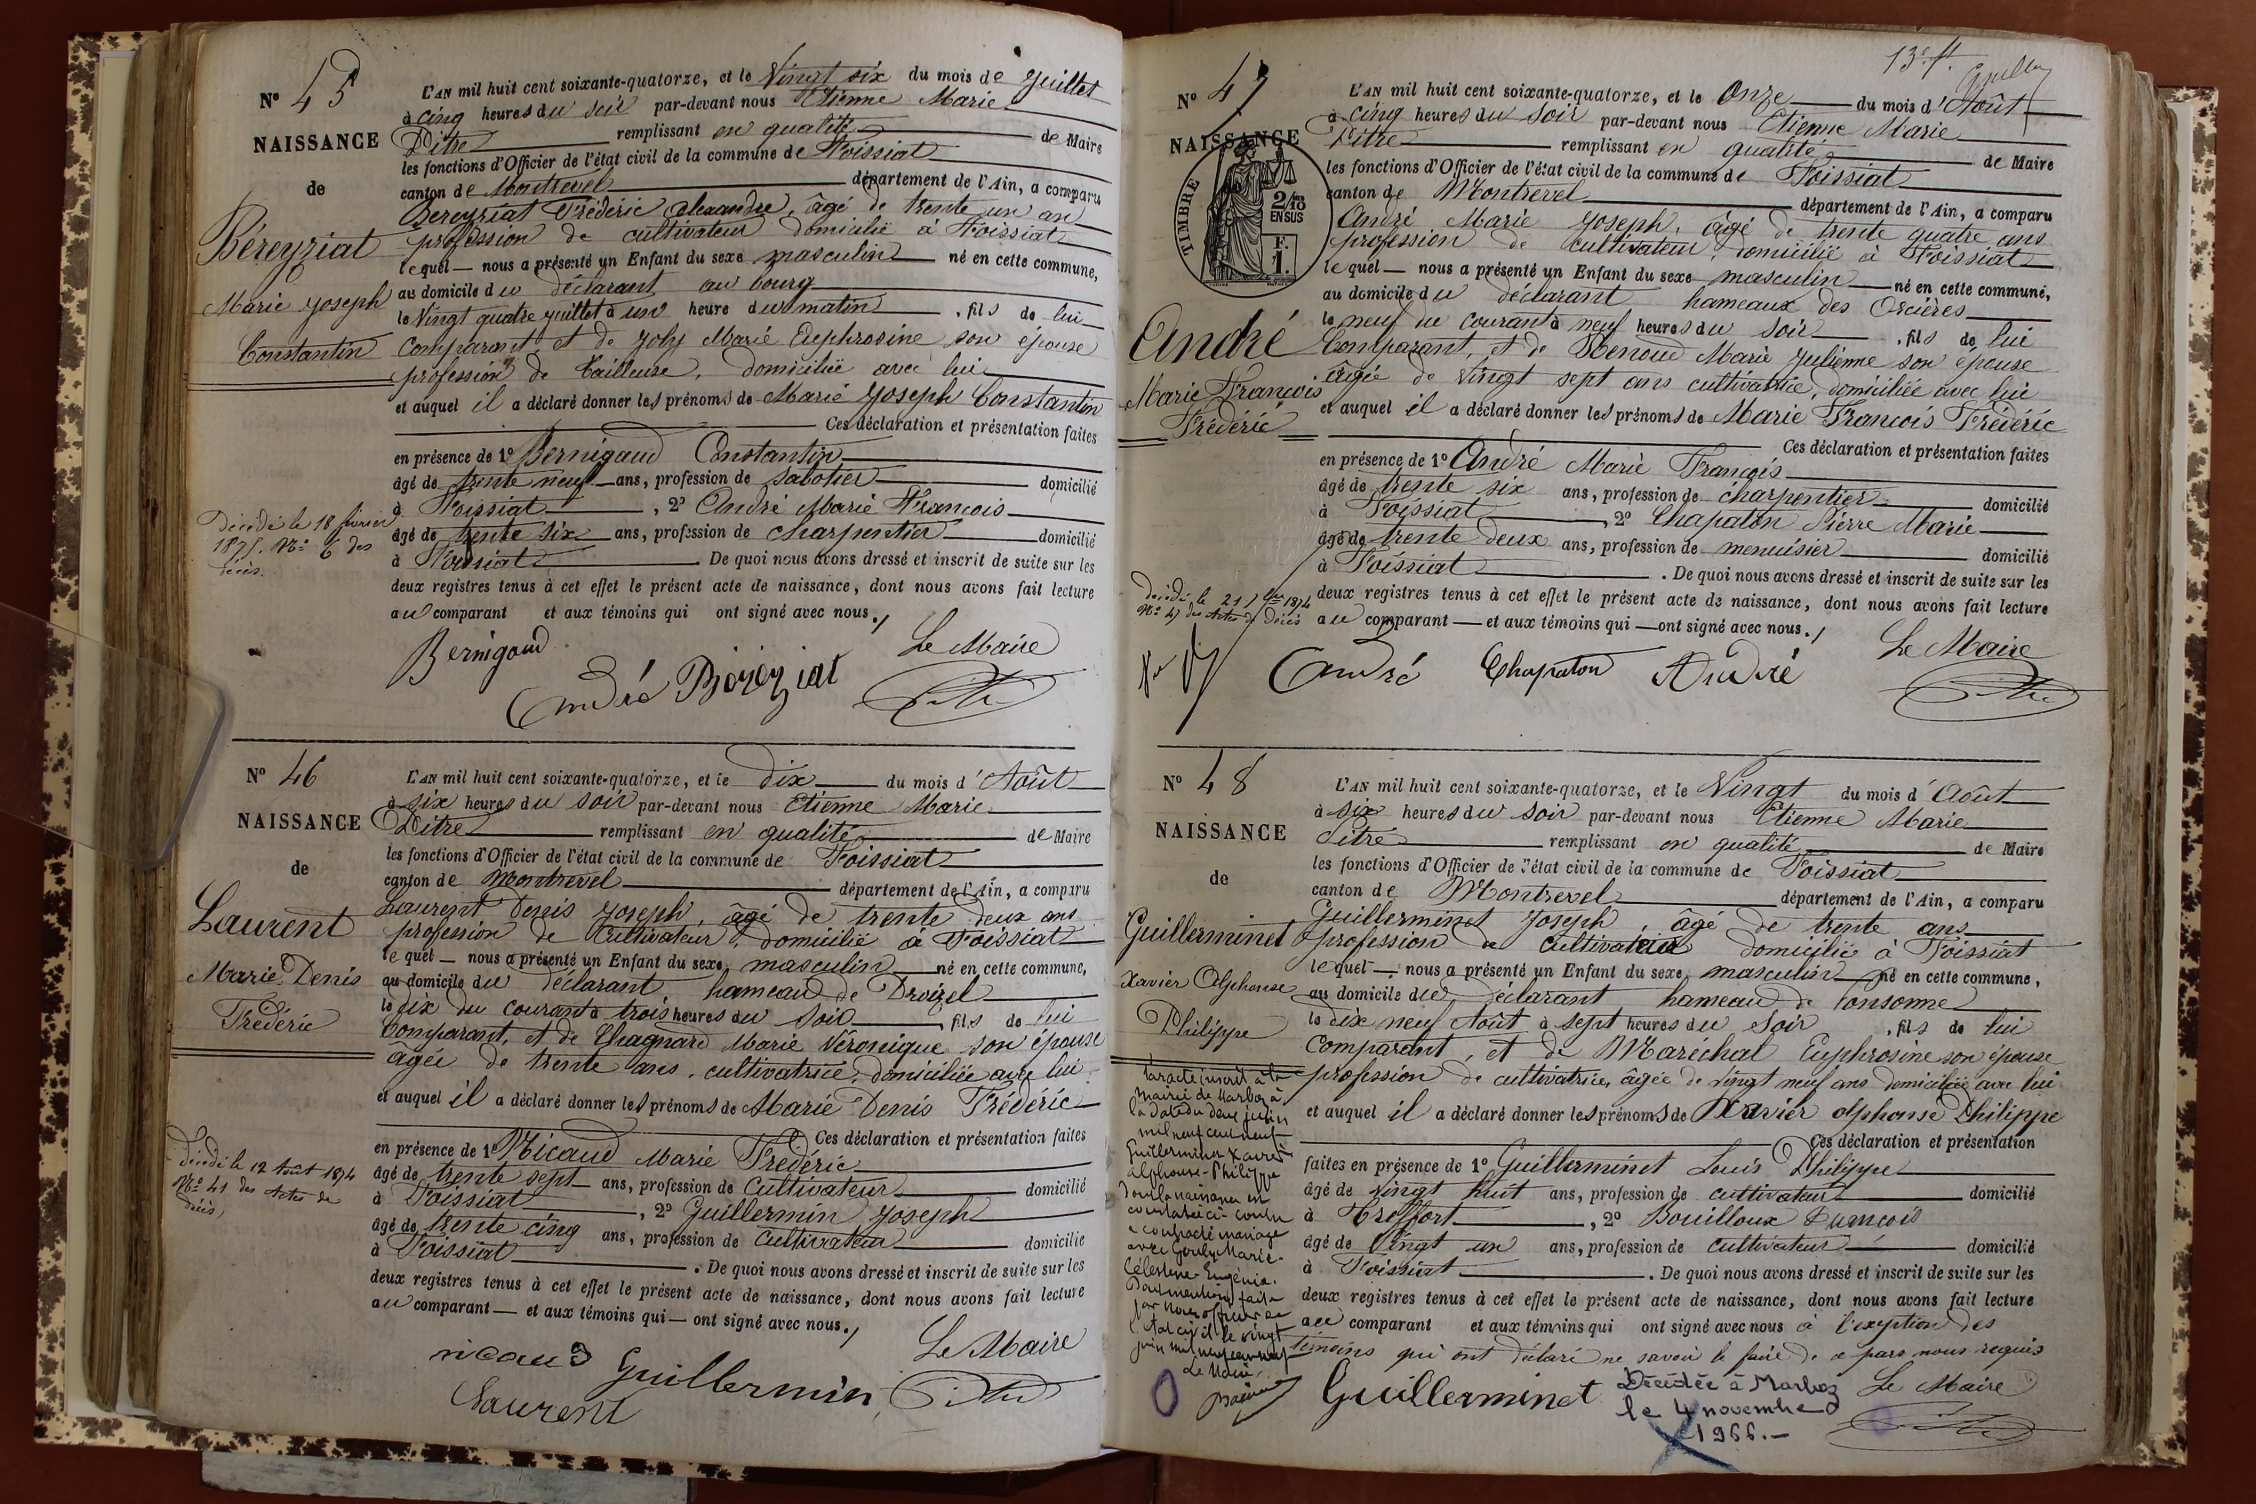 No 45
NAISSANCE
de
Béreyziat
Marie Joseph
Constantin
Décédé le 18 février
1875. No 6 des
décès.
L'AN mil huit cent soixante-quatorze, et le Vingt six du mois de Juillet
à cinq heures du soir par-devant nous Etienne Marie
Pitre remplissant en qualité de Maire
les fonctions d'Officier de l'état civil de la commune de Foissiat
canton de Montrevel département de l'Ain, a comparu
Bereyziat Frédéric Alexandre, âgé de trente un an
profession de cultivateur domicilié à Foissiat
lequel nous a présenté un Enfant du sexe masculin né en cette commune,
au domicile du déclarant au bourg
le Vingt quatre Juillet à une heure du matin, fils de lui
comparant et de Joly Marie Euphrosine son épouse
profession de tailleuse, domiciliée avec lui
et auquel il a déclaré donner les prénoms de Marie Joseph Constantin
Ces déclaration et présentation faites
en présence de 1o Bernigaud Constantin
âgé de trente neuf ans, profession de sabotier domicilié
à Foissiat, 2o André Marie François
âgé de trente six ans, profession de charpentier domicilié
à Foissiat. De quoi nous avons dressé et inscrit de suite sur les
deux registres tenus à cet effet le présent acte de naissance, dont nous avons fait lecture
au comparant et aux témoins qui ont signé avec nous./
Bernigaud
André Béréyziat
Le Maire
No 46
NAISSANCE
de
Laurent
Marie Denis
Frédéric
Décédé le 12 Août 1874
No 41 des Actes de
décès,
L'AN mil huit cent soixante-quatorze, et le dix du mois d'Août
à six heures du soir par-devant nous Etienne Marie
Pitre remplissant en qualité de Maire
les fonctions d'Officier de l'état civil de la commune de Foissiat
canton de Montrevel département de l'Ain, a comparu
Laurent Denis Joseph, âgé de trente deux ans
profession de Cultivateur, domicilié à Foissiat
lequel nous a présenté un Enfant du sexe masculin né en cette commune,
au domicile du déclarant hameau de
le dix du courant à trois heures du soir, fils de lui
Comparant, et de Chagnard Marie Véronique son épouse
âgée de trente ans, cultivatrice, domiciliée avec lui
et auquel il a déclaré donner les prénoms de Marie Denis Frédéric
Ces déclaration et présentation faites
en présence de 1o Nicaud Marie Frédéric
âgé de trente sept ans, profession de Cultivateur domicilié
à Foissiat, 2o Guillermin Joseph
âgé de trente cinq ans, profession de Cultivateur domicilié
à Foissiat. De quoi nous avons dressé et inscrit de suite sur les
deux registres tenus à cet effet le présent acte de naissance, dont nous avons fait lecture
au comparant et aux témoins qui ont signé avec nous./
nicaud Guillermin
Laurent
Le Maire
13e f.
No 47
NAISSANCE
TIMBRE
2/10
EN SUS
F.
1.
André
Marie François
Frédéric
Décédé le 21 1874
No 47 des Actes de décès
L'AN mil huit cent soixante-quatorze, et le Onze du mois d'Août
à cinq heures du soir par-devant nous Etienne Marie
Pitre remplissant en qualité de Maire
les fonctions d'Officier de l'état civil de la commune de Foissiat
canton de Montrevel département de l'Ain, a comparu
André Marie Joseph, âgé de trente quatre ans
profession de cultivateur, domicilié à Foissiat
lequel nous a présenté un Enfant du sexe masculin né en cette commune,
au domicile du déclarant hameaux des
le neuf du courant à neuf heures du soir, fils de lui
Comparant, et de Renoud Marie Julienne son épouse
âgée de vingt sept ans cultivatrice, domiciliée avec lui
et auquel il a déclaré donner les prénoms de Marie François Frédéric
Ces déclaration et présentation faites
en présence de 1o André Marie François
âgé de trente six ans, profession de charpentier domicilié
à Foissiat, 2o Chapaton Pierre Marie
âgé de trente deux ans, profession de menuisier domicilié
à Foissiat. De quoi nous avons dressé et inscrit de suite sur les
deux registres tenus à cet effet le présent acte de naissance, dont nous avons fait lecture
au comparant et aux témoins qui ont signé avec nous./
André Chapaton André
Le Maire
No 48
NAISSANCE
de
Guillerminet
Xavier Alphonse
Philippe
Par acte inscrit à la
mairie de Marboz à
la date du douze juin
mil neuf cent neuf
Guillerminet Xavier
Alphonse-Philippe
dont la naissance est
constatée ci-contre
a contracté mariage
avec Gouly Marie-
Célestine-Eugénie.
Dont mention faite
par nous officier de
l'état civil le vingt
juin mil neuf cent neuf
Le Maire,
L'AN mil huit cent soixante-quatorze, et le Vingt du mois d'Août
à six heures du soir par-devant nous Etienne Marie
Pitre remplissant en qualité de Maire
les fonctions d'Officier de l'état civil de la commune de Foissiat
canton de Montrevel département de l'Ain, a comparu
Guillerminet Joseph, âgé de trente ans
profession de cultivateur domicilié à Foissiat
lequel nous a présenté un Enfant du sexe masculin né en cette commune,
au domicile du déclarant, hameau de
le dix neuf Août à sept heures du soir, fils de lui
comparant, et de Maréchal Euphrosine son épouse
profession de cultivatrice, âgée de vingt neuf ans domiciliée avec lui
et auquel il a déclaré donner les prénoms de Xavier Alphonse Philippe
Ces déclaration et présentation
faites en présence de 1o Guillerminet Louis Philippe
âgé de vingt huit ans, profession de cultivateur domicilié
à Treffort, 2o Bouilloux François
âgé de Vingt un ans, profession de cultivateur domicilié
à Foissiat. De quoi nous avons dressé et inscrit de suite sur les
deux registres tenus à cet effet le présent acte de naissance, dont nous avons fait lecture
au comparant et aux témoins qui ont signé avec nous à l'exception des
témoins qui ont déclaré ne savoir le faire de ce par nous requis
Guillerminet
Décédée à Marboz
le 4 novembre
1966.-
Le Maire